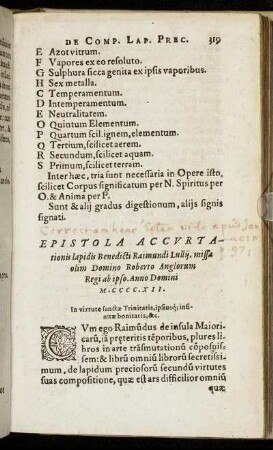 DE COMP. LAP. PREC. 319
E Azot vitrum.
F Vapores ex eo resoluto.
G Sulphura sicca genita ex ipsis vaporibus.
H Sex metalla.
C Temperamentum.
D Intemperamentum.
E Neutralitatem.
O Quintum Elementum.
P Quartum scil. ignem, elementum.
Q Tertium, scilicet aerem.
R Secundum, scilicet aquam.
S Primum, scilicet terrain.
Inter hæc, tria sunt necessaria in Opere isto,
scilicet Corpus significatum per N. Spiritus per
O. & Anima per P.
Sunt & alij gradus digestionum, alijs signis
signati.
EPISTOLA ACCVRTA-
tionis lapidis Benedicti Raimundi Lullij, missa
olim Domino Roberto Anglorum
Regi ab ipso. Anno Domini
M.CCCC.XII.
In virtute sanctæ Trinitatis, ipsiusq; infi-
nitæ bonitatis, &c.
CVm ego Raimũdus de insula Maiori-
carũ, iã præteritis tẽporibus, plures li
bros in arte trãsmutationũ cõposuis-
sem: & librũ omniũ librorũ secretissi-
mum, de lapidum preciosorũ secundũ virtutes
suas compositione, quæ est ars difficilior omniũ
quæ